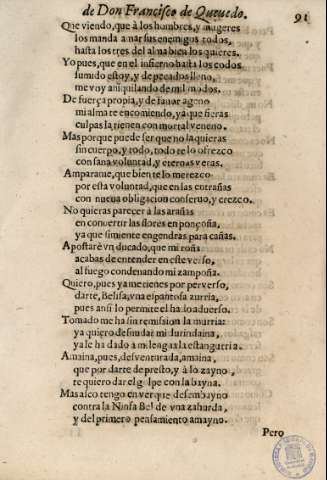 de Don Francisco de Queuedo. 91
Que viendo, que à los hombres, y mugeres
los manda amar sus enemigos todos,
hasta los tres del alma bien los quieres.
Yo pues, que en el infierno hasta los codos
sumido estoy, y de pecados lleno,
me voy aniquilando de mil modos.
De fuerça propia, y de fauor ageno
mi alma te encomiendo, ya que fieras
culpas la tienen con mortal veneno.
Mas porque puede ser que no la quieras
sin cuerpo, y todo, todo te lo ofrezco
con sana voluntad, y eternas veras.
Amparame, que bien te lo merezco
por esta voluntad, que en las entrañas
con nueua obligacion conseruo, y crezco.
No quieras parecer à las arañas
en conuertir las flores en ponçoña,
ya que simiente engendras para cañas.
Apostarè vn ducado, que mi roña
acabas de entender en este verso,
al fuego condenando mi zampoña.
Quiero, pues ya me tienes por peruerso,
darte, Belisa, vna espantosa zurria,
pues ansi lo permite el hado aduerso.
Tomado me ha sin remision la murria:
ya quiero desnudar mi durindaina,
ya le ha dado a mi lengua la estangurria.
Amaina, pues, desventurada, amaina,
que por darte de presto, y à lo zayno,
te quiero dar el golpe con la bayna.
Mas asco tengo en ver que desembayno
contra la Ninfa Bel de vna zahurda,
y del primero pensamiento amayno.
Pero